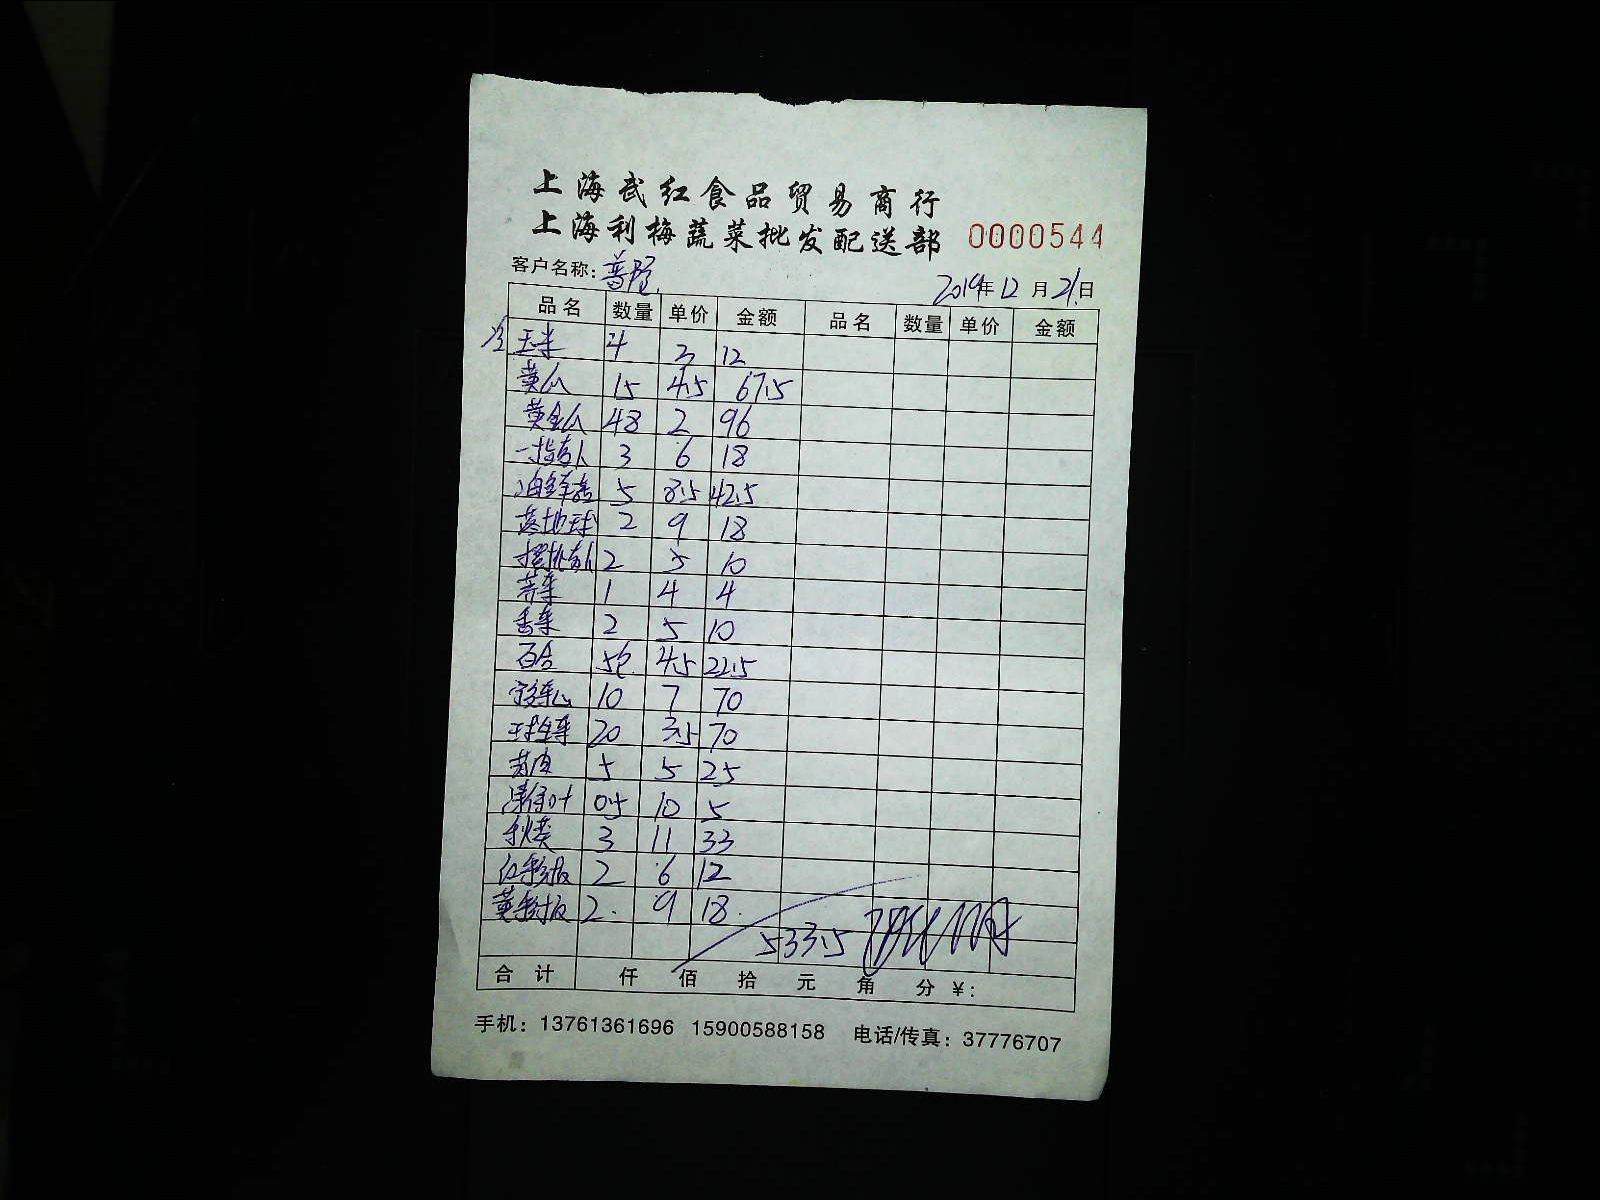 上海武红食品贸易商行
上海利梅蔬菜批发配送部 0000544
客户名称: 普陀 2019年12月21日
品名 数量 单价 金额 品名 数量 单价 金额
玉米 4 3 12
黄瓜 15 4.5 67.5
黄金瓜 48 2 96
3 6 18
5 8.5 42.5
落地球 2 9 18
2 5 10
芹菜 1 4 4
香菜 2 5 10
百合 5包 4.5 22.5
10 7 70
球生菜 20 3.5 70
5 5 25
0.5 10 5
秋葵 3 11 33
红彩椒 2 6 12
黄彩椒 2 9 18
533.5
合计 仟 佰 拾 元 角 分 ¥:
手机: 13761361696 15900588158 电话/传真: 37776707